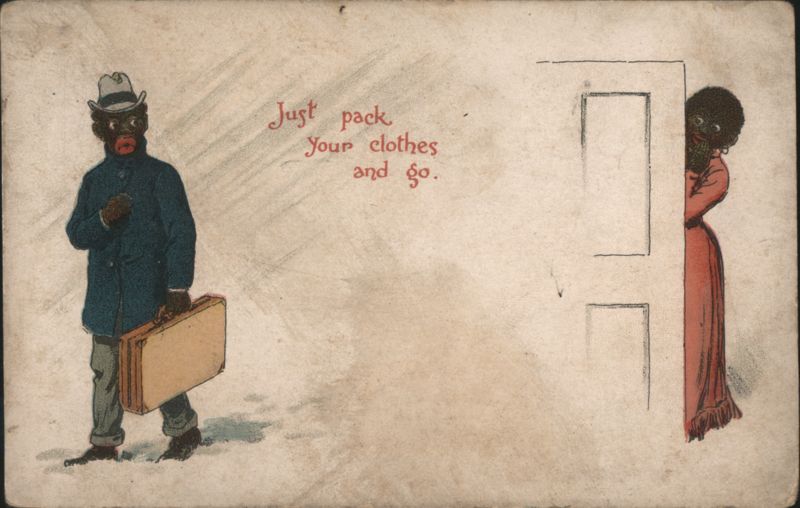 Just pack
your clothes
and go.